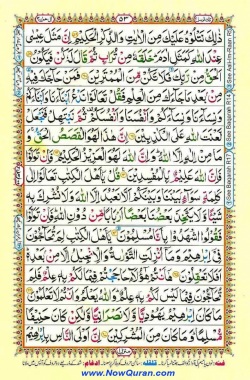 ۵۳
ذٰلِكَ نَتْلُوْهُ عَلَيْكَ مِنَ الْاٰيٰتِ وَالذِّكْرِ الْحَكِيْمِ اِنَّ مَثَلَ عِيْسٰى
عِنْدَ اللّٰهِ كَمَثَلِ اٰدَمَ خَلَقَهٗ مِنْ تُرَابٍ ثُمَّ قَالَ لَهٗ كُنْ فَيَكُوْنُ
اَلْحَقُّ مِنْ رَّبِّكَ فَلَا تَكُنْ مِّنَ الْمُمْتَرِيْنَ فَمَنْ حَآجَّكَ فِيْهِ
مِنْۢ بَعْدِ مَا جَآءَكَ مِنَ الْعِلْمِ فَقُلْ تَعَالَوْا نَدْعُ اَبْنَآءَنَا وَاَبْنَآءَكُمْ
وَنِسَآءَنَا وَنِسَآءَكُمْ وَاَنْفُسَنَا وَاَنْفُسَكُمْ ثُمَّ نَبْتَهِلْ فَنَجْعَلْ
لَّعْنَتَ اللّٰهِ عَلَى الْكٰذِبِيْنَ اِنَّ هٰذَا لَهُوَ الْقَصَصُ الْحَقُّ وَ
مَا مِنْ اِلٰهٍ اِلَّا اللّٰهُ وَاِنَّ اللّٰهَ لَهُوَ الْعَزِيْزُ الْحَكِيْمُ فَاِنْ تَوَلَّوْا
فَاِنَّ اللّٰهَ عَلِيْمٌۢ بِالْمُفْسِدِيْنَ قُلْ يٰٓاَهْلَ الْكِتٰبِ تَعَالَوْا اِلٰى
كَلِمَةٍ سَوَآءٍۭ بَيْنَنَا وَبَيْنَكُمْ اَلَّا نَعْبُدَ اِلَّا اللّٰهَ وَلَا نُشْرِكَ بِهٖ
شَيْئًا وَّلَا يَتَّخِذَ بَعْضُنَا بَعْضًا اَرْبَابًا مِّنْ دُوْنِ اللّٰهِ فَاِنْ تَوَلَّوْا
فَقُوْلُوا اشْهَدُوْا بِاَنَّا مُسْلِمُوْنَ يٰٓاَهْلَ الْكِتٰبِ لِمَ تُحَآجُّوْنَ
فِيْٓ اِبْرٰهِيْمَ وَمَآ اُنْزِلَتِ التَّوْرٰىةُ وَالْاِنْجِيْلُ اِلَّا مِنْۢ بَعْدِهٖ
اَفَلَا تَعْقِلُوْنَ هٰٓاَنْتُمْ هٰٓؤُلَآءِ حَاجَجْتُمْ فِيْمَا لَكُمْ بِهٖ عِلْمٌ فَلِمَ
تُحَآجُّوْنَ فِيْمَا لَيْسَ لَكُمْ بِهٖ عِلْمٌ وَاللّٰهُ يَعْلَمُ وَاَنْتُمْ لَا تَعْلَمُوْنَ
مَا كَانَ اِبْرٰهِيْمُ يَهُوْدِيًّا وَّلَا نَصْرَانِيًّا وَّلٰكِنْ كَانَ حَنِيْفًا
مُّسْلِمًا وَمَا كَانَ مِنَ الْمُشْرِكِيْنَ اِنَّ اَوْلَى النَّاسِ بِاِبْرٰهِيْمَ
www.NowQuran.com